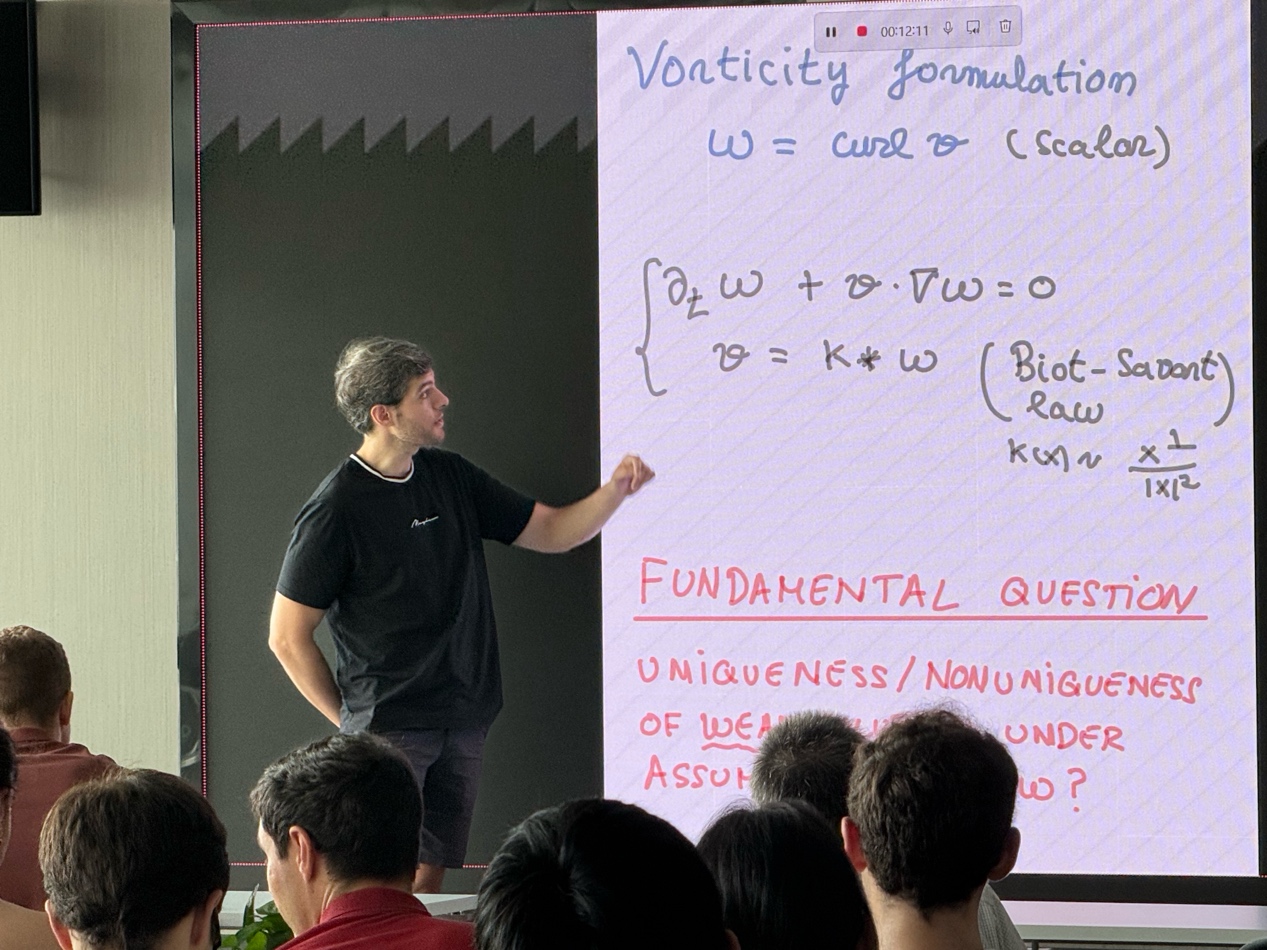 00:12:11
Vorticity formulation
ω = curl v (scalar)
∂ₜω + v · ∇ω = 0
v = K * ω (Biot-Savart law)
K(x) ~ x^⊥ / |x|²
FUNDAMENTAL QUESTION
UNIQUENESS/NONUNIQUENESS
OF UNDER
ω ?